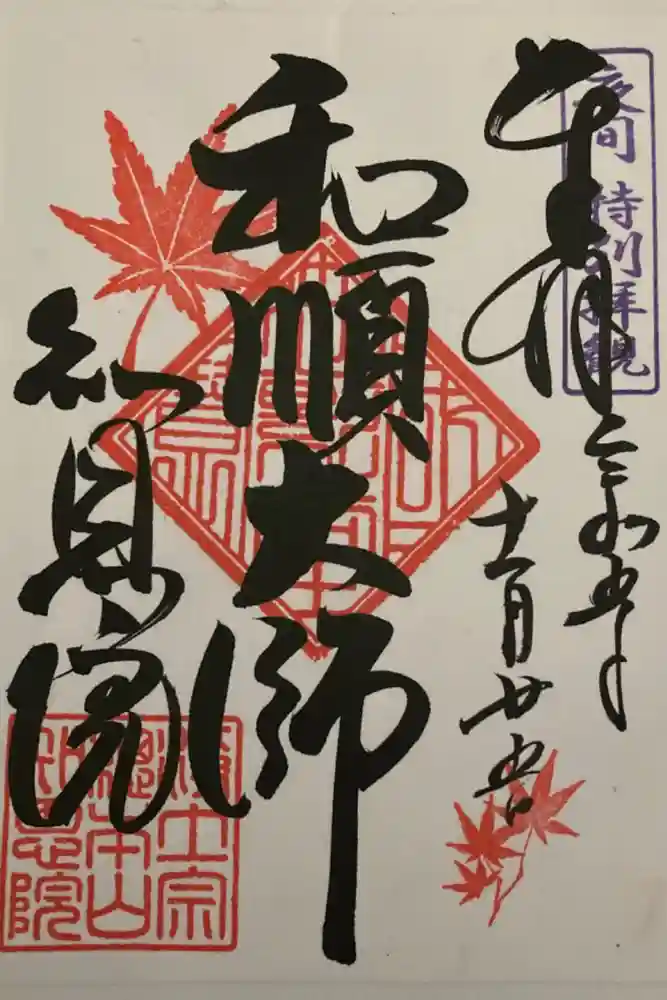 夜間 特別拝観
奉拝
令和五年
十一月廿五日
和順大師
知恩院
浄土宗
總本山
知恩院